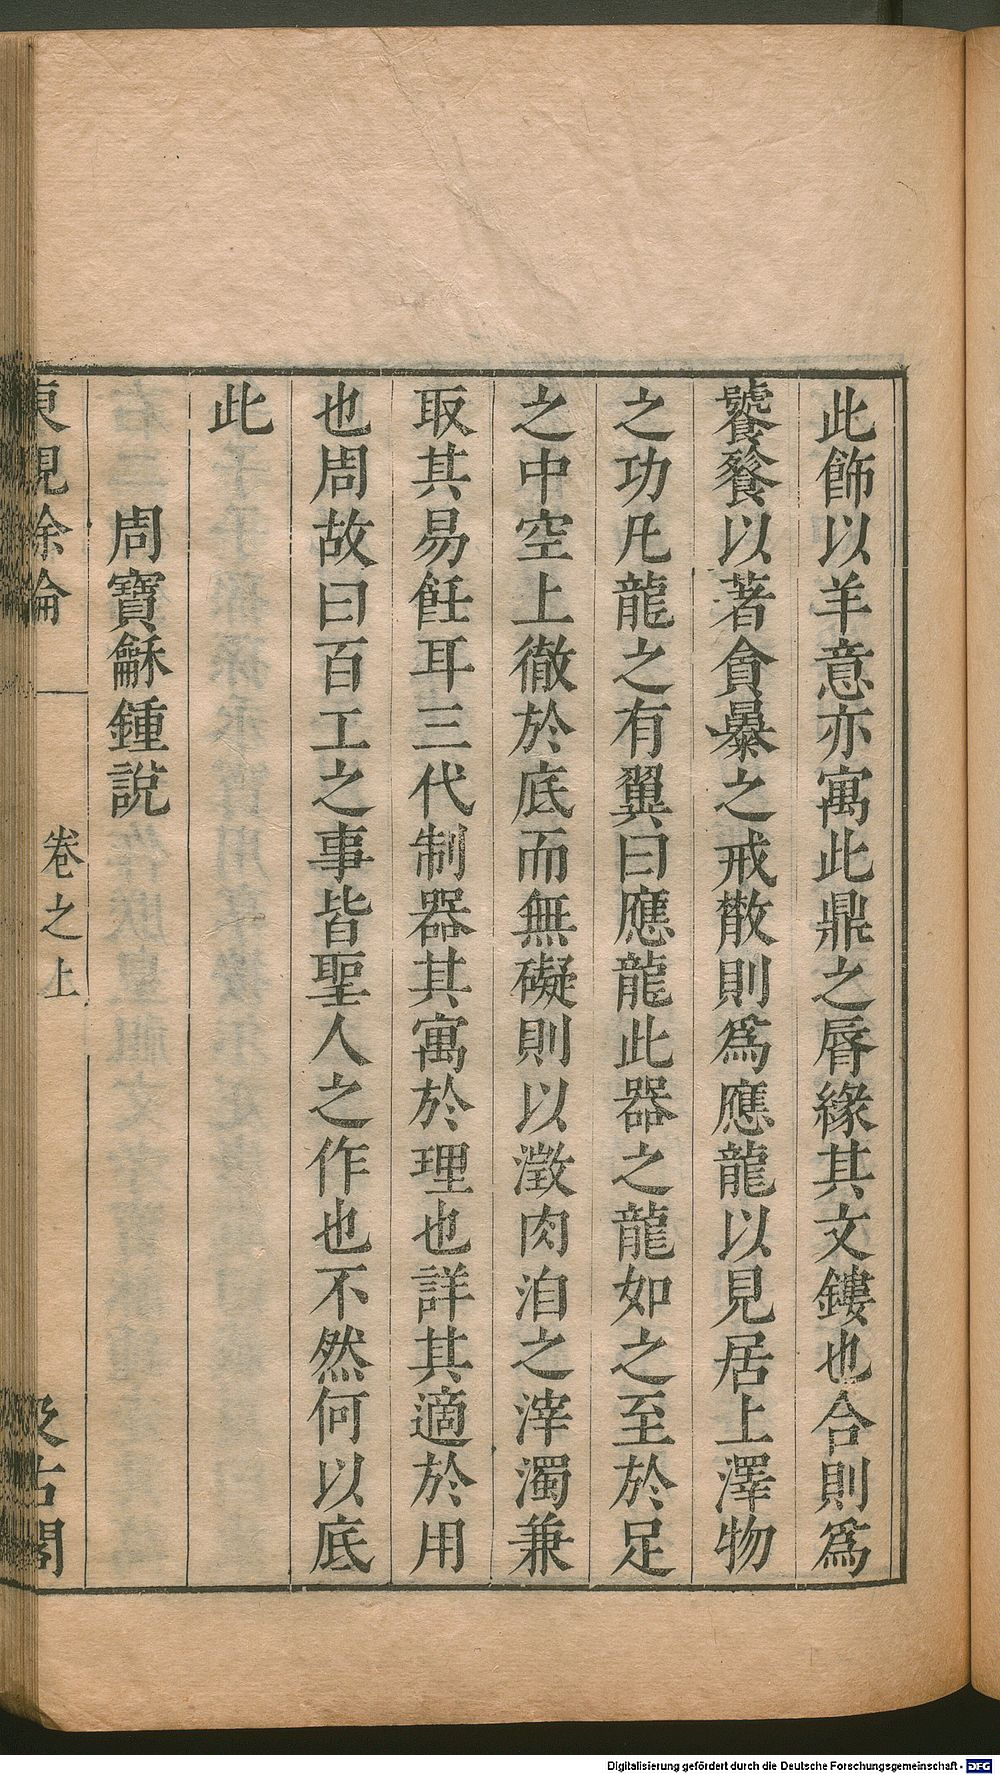 此飾以羊意亦寓此鼎之脣緣其文鏤也合則爲
饕餮以著貪暴之戒散則爲應龍以見居上澤物
之功凡龍之有翼曰應龍此器之龍如之至於足
之中空上徹於底而無礙則以澂肉洎之滓濁兼
取其易飪耳三代制器其寓於理也詳其適於用
也周故曰百工之事皆聖人之作也不然何以底
此
周寶龢鍾說
東觀餘論 卷之上 汲古閣
Digitalisierung gefördert durch die Deutsche Forschungsgemeinschaft - DFG